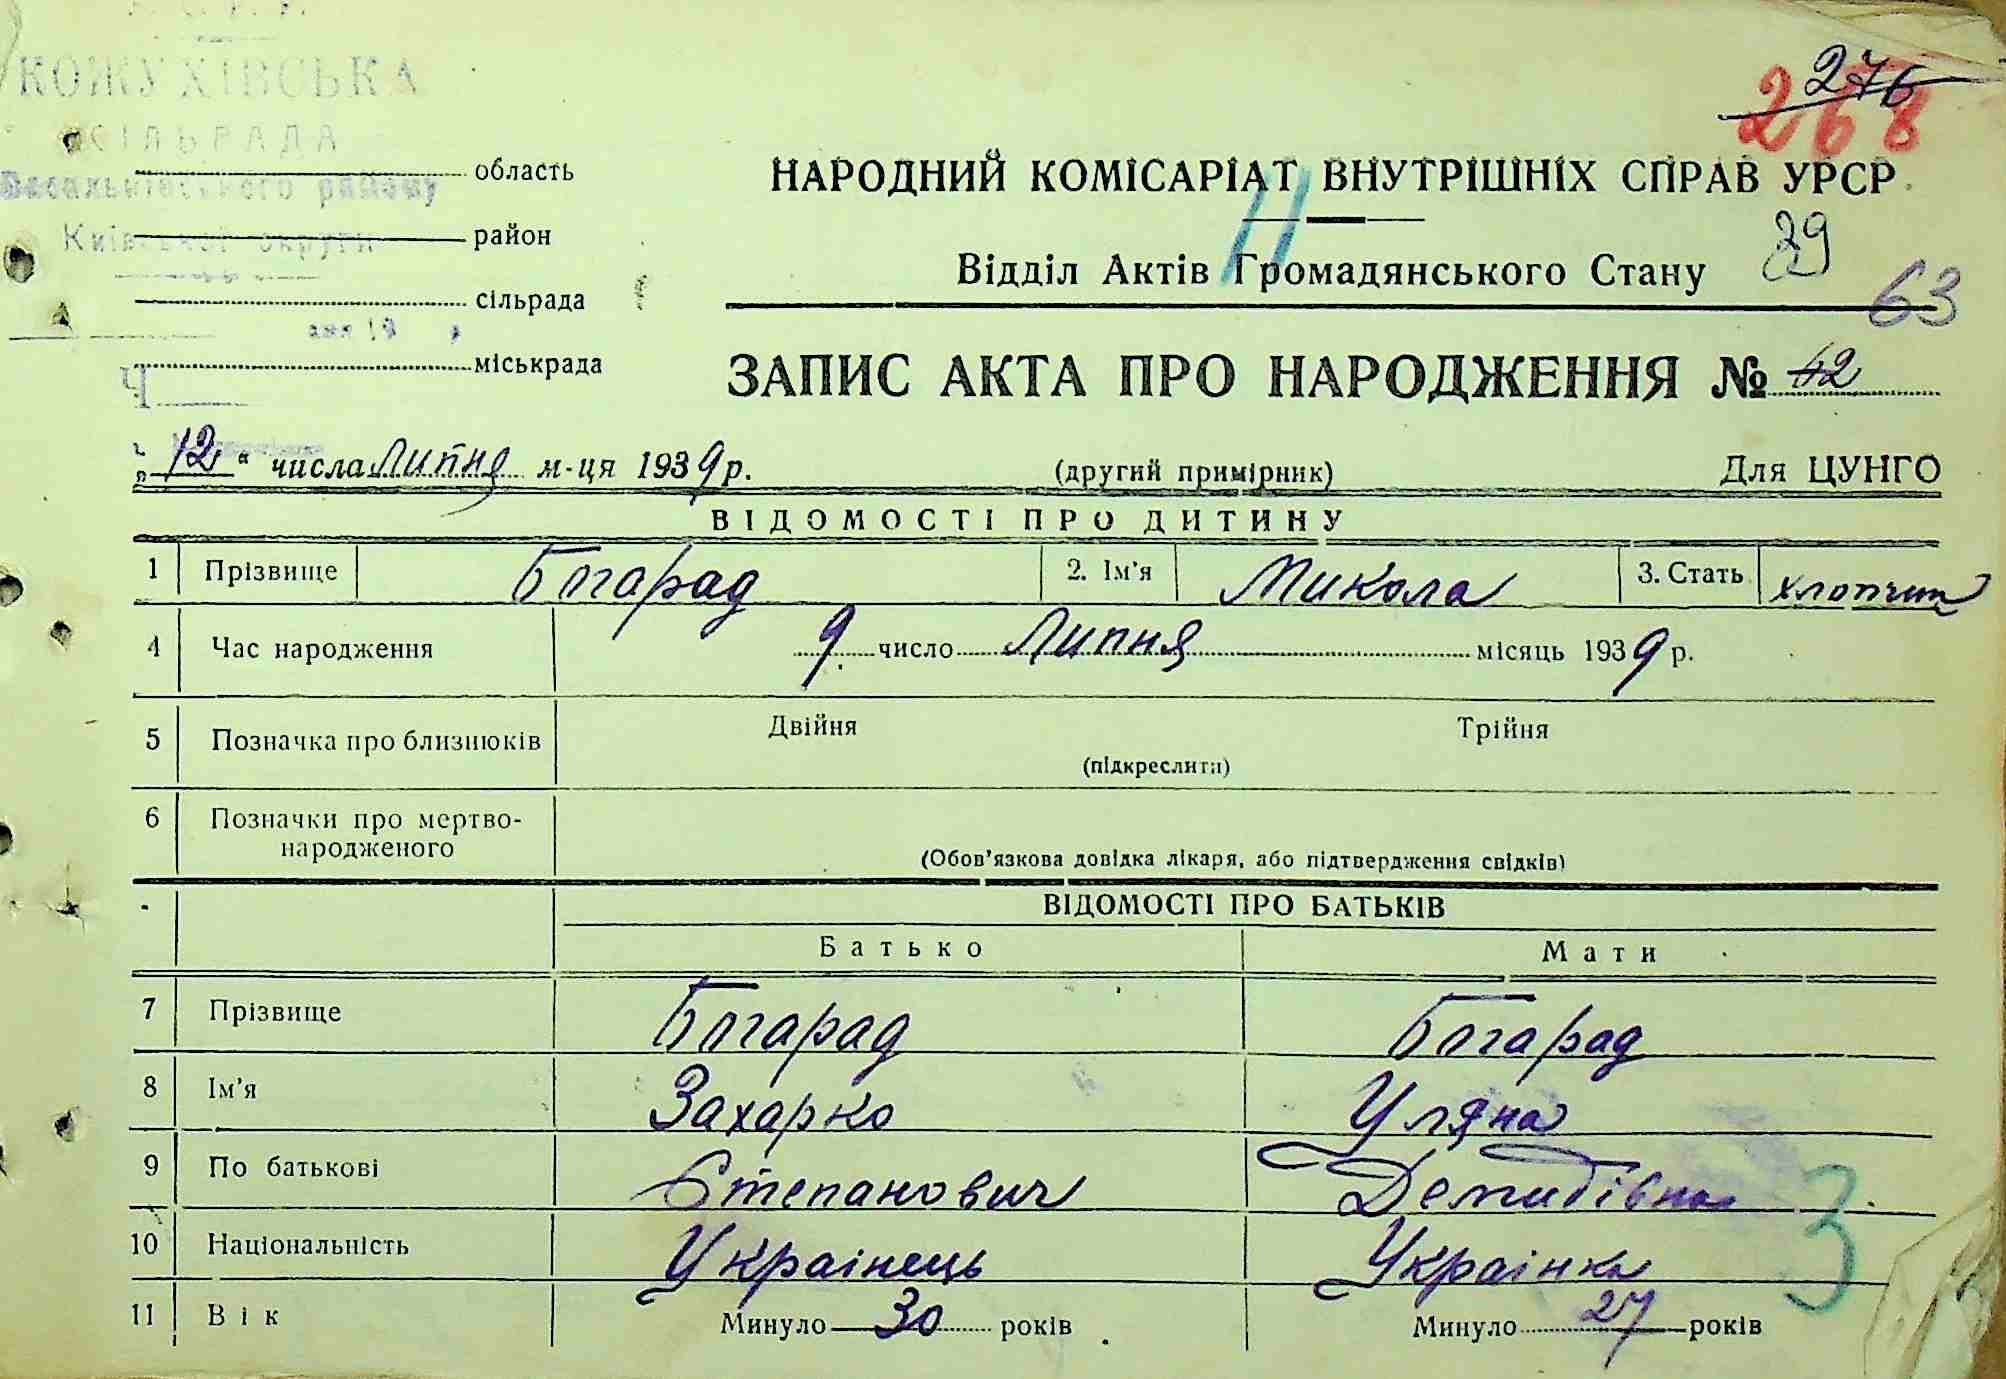 КОЖУХІВСЬКА
СІЛЬРАДА
Васильківського району
Київської округи
область
район
сільрада
міськрада
276
268
НАРОДНИЙ КОМІСАРІАТ ВНУТРІШНІХ СПРАВ УРСР
Відділ Актів Громадянського Стану
63
ЗАПИС АКТА ПРО НАРОДЖЕННЯ № 42
„12“ числа Липня м-ця 1939 р.
(другий примірник)
Для ЦУНГО
ВІДОМОСТІ ПРО ДИТИНУ
1 Прізвище Богарад 2. Ім'я Микола 3. Стать хлопчик
4 Час народження 9 число Липня місяць 1939 р.
5 Позначка про близнюків Двійня Трійня
(підкреслити)
6 Позначки про мертво-
народженого
(Обов'язкова довідка лікаря, або підтвердження свідків)
ВІДОМОСТІ ПРО БАТЬКІВ
Батько Мати
7 Прізвище Богарад Богарад
8 Ім'я Захарко Уляна
9 По батькові Степанович Демидівна
10 Національність Українець Українка
11 Вік Минуло 30 років Минуло 27 років
3